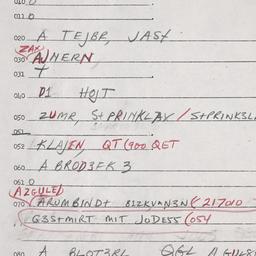 010 0
011 0
020 A TEJBR, JAST
ZAX
030 AJHERN
031 +
040 D1 HOJT
050 ZUMR, S+PRINKLZAY / S+PRINK3L
051
052 KLAJEN, QT (900 QET
060 A BROD3FK 3
061 0
AZGULED
070 ARUMBINDT B1ZKVAN3N (217010
G3S+MIRT MIT JODE55 (054
080 A BLOT3RL